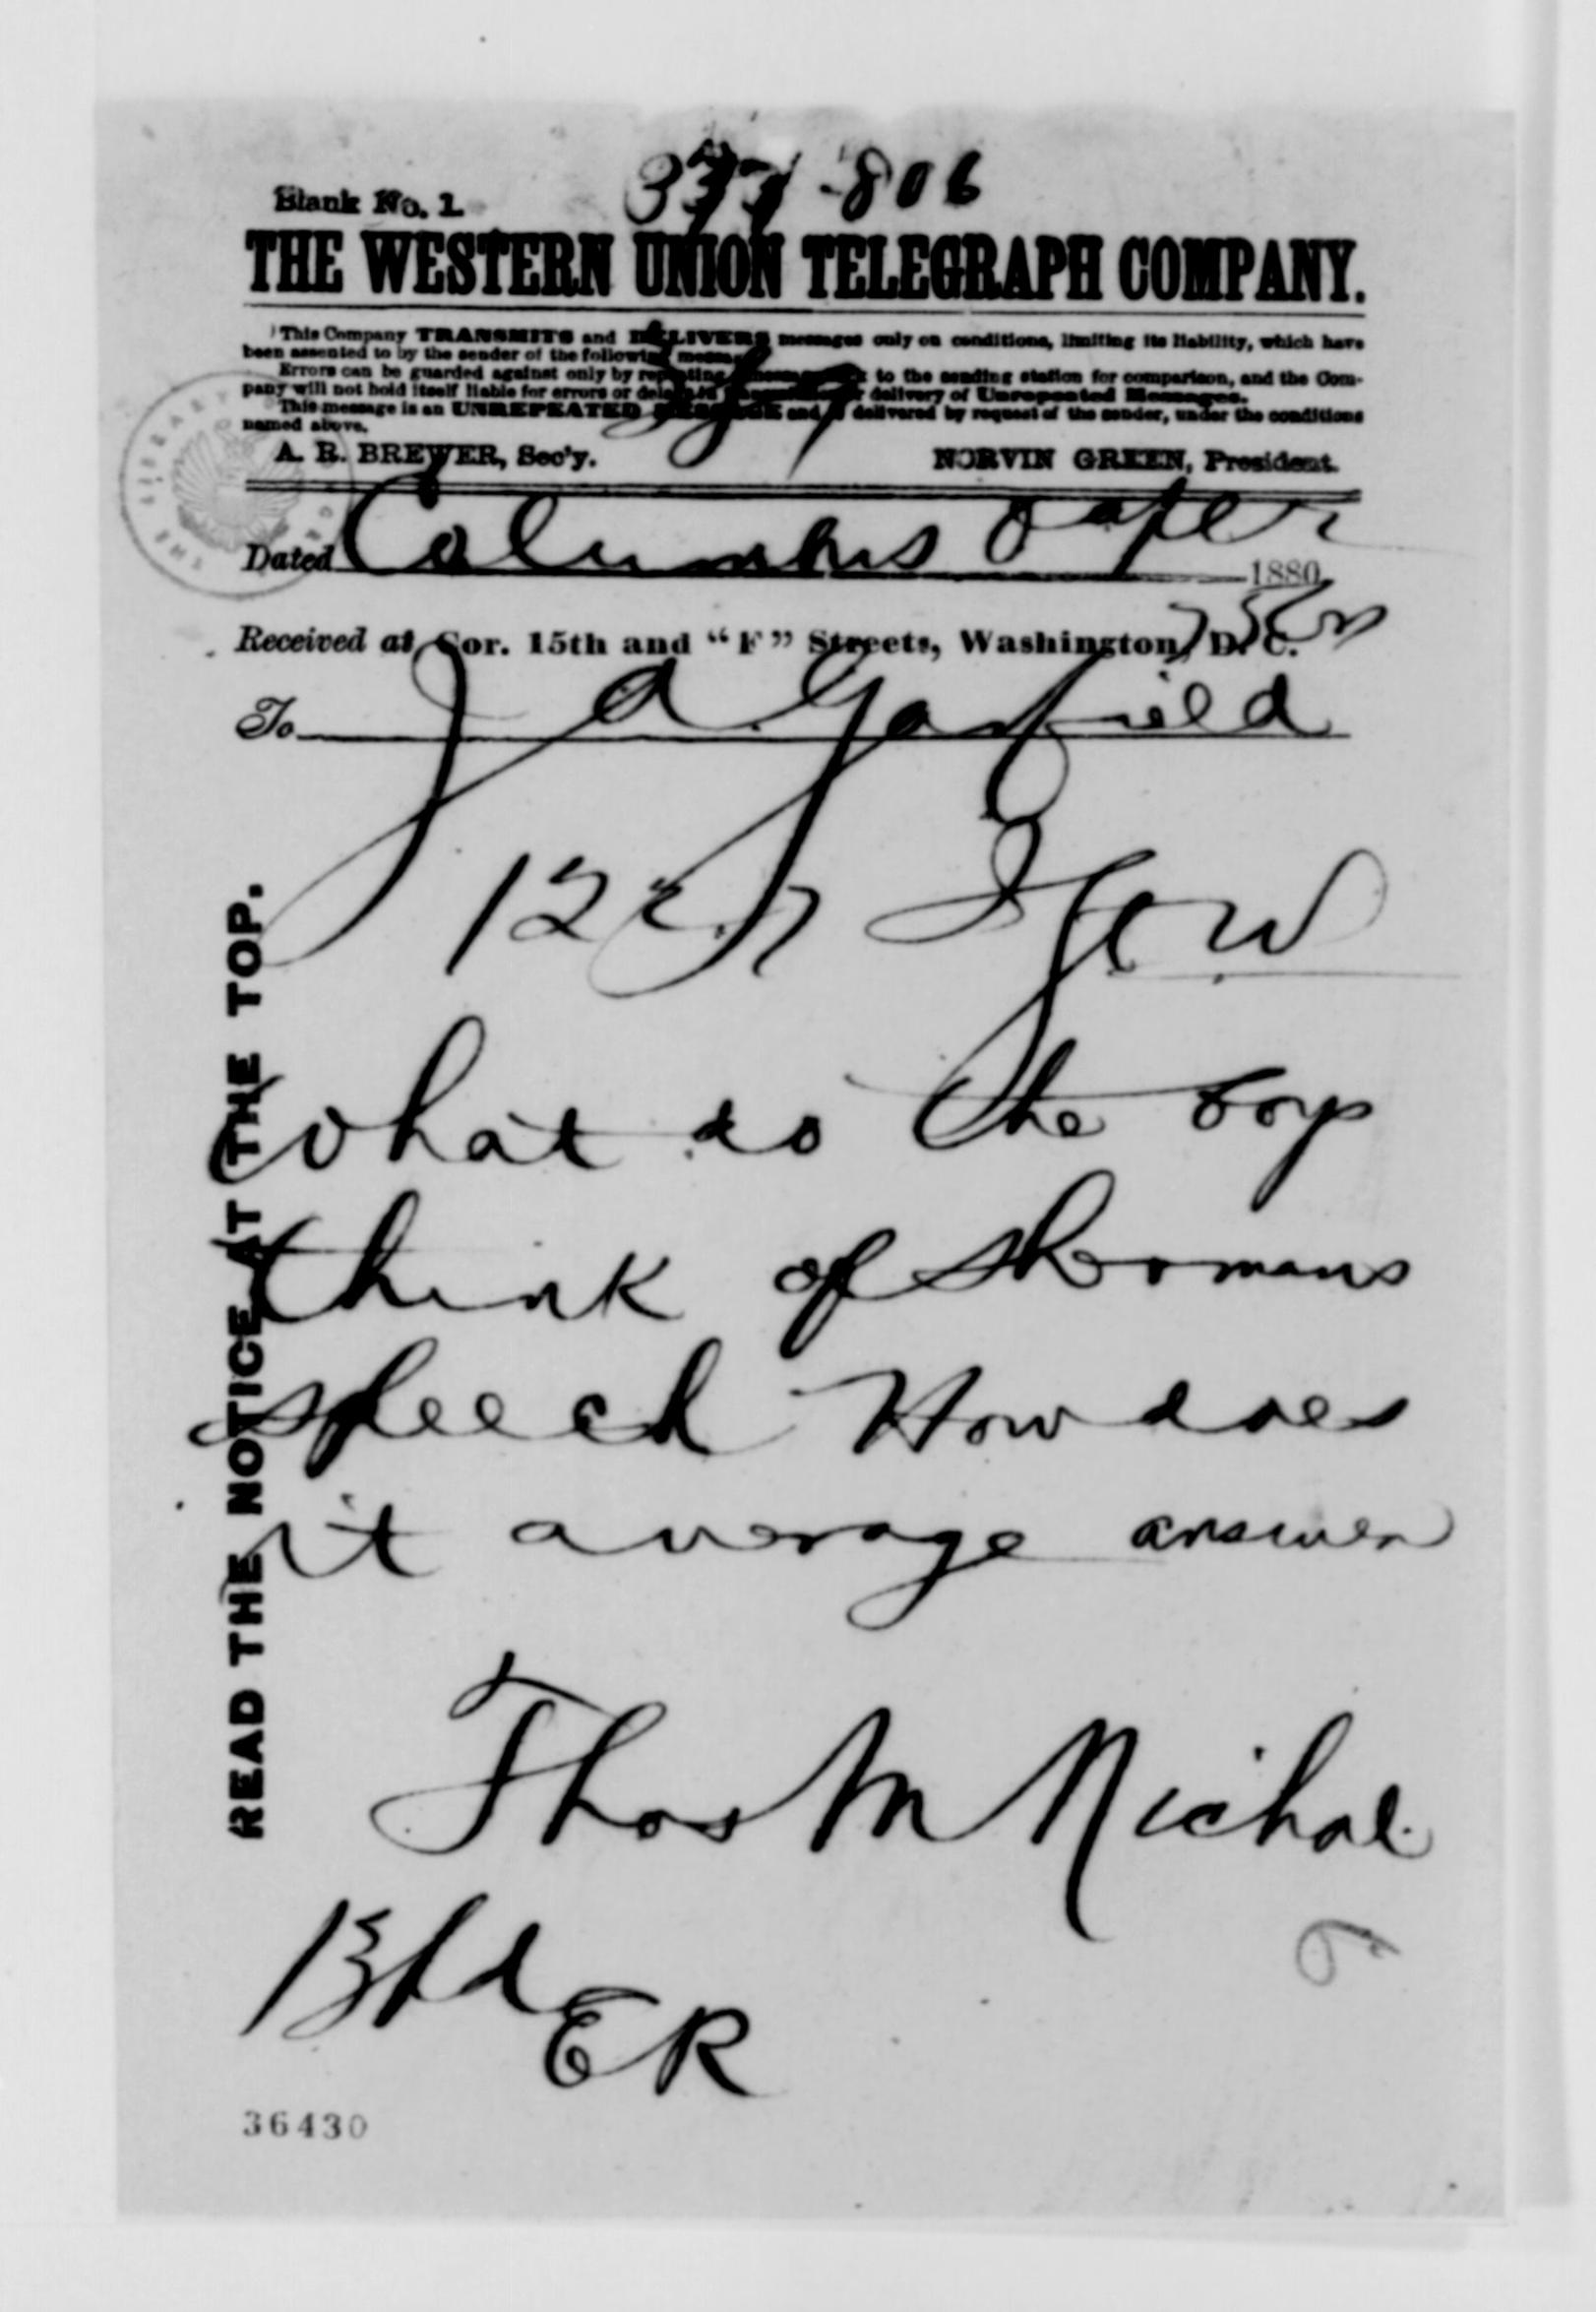 Blank No. 1.
-806
THE WESTERN UNION TELEGRAPH COMPANY.
This Company TRANSMITS and DELIVERS messages only on conditions, limiting its liability, which have
been assented to by the sender of the following message.
Errors can be guarded against only by repeating to the sending station for comparison, and the Com-
pany will not hold itself liable for errors or delays delivery of Unrepeated Messages.
This message is an UNREPEATED MESSAGE and is delivered by request of the sender, under the conditions
named above.
A. R. BREWER, Sec'y.
NORVIN GREEN, President.
Dated Columbus 1880
Received at Cor. 15th and "F" Streets, Washington, D. C.
To J A Garfield
what do the boys
think of Shermans
speech How does
it average answer
Thos M Nichol
ER
36430
READ THE NOTICE AT THE TOP.